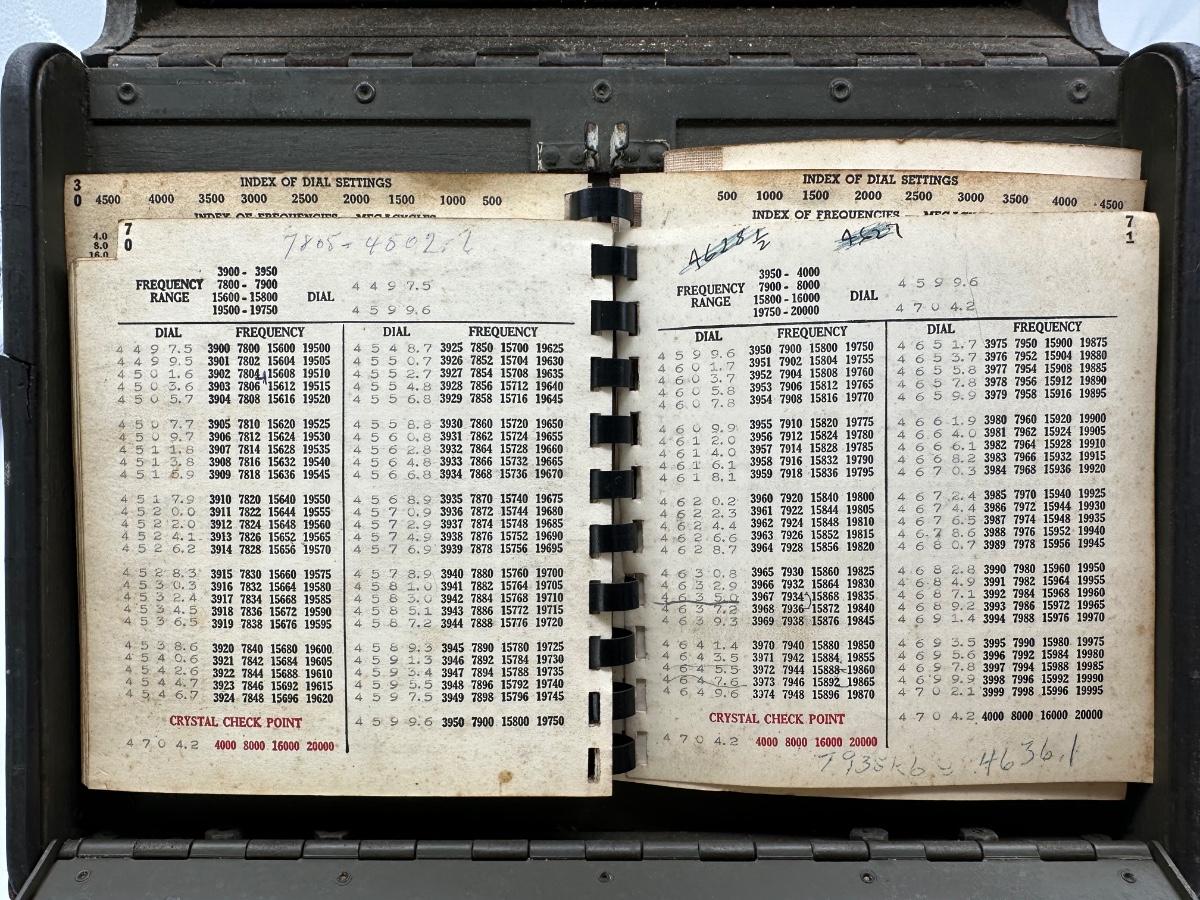 3
0
INDEX OF DIAL SETTINGS
4500 4000 3500 3000 2500 2000 1500 1000 500
INDEX OF FREQUENCIES — MEGACYCLES
4.0
8.0
16.0
7
0
7805 - 4502.2
FREQUENCY RANGE
3900 - 3950
7800 - 7900
15600 - 15800
19500 - 19750
DIAL
4497.5
4599.6
DIAL FREQUENCY
4497.5 3900 7800 15600 19500
4499.5 3901 7802 15604 19505
4501.6 3902 7804 15608 19510
4503.6 3903 7806 15612 19515
4505.7 3904 7808 15616 19520
4507.7 3905 7810 15620 19525
4509.7 3906 7812 15624 19530
4511.8 3907 7814 15628 19535
4513.8 3908 7816 15632 19540
4515.9 3909 7818 15636 19545
4517.9 3910 7820 15640 19550
4520.0 3911 7822 15644 19555
4522.0 3912 7824 15648 19560
4524.1 3913 7826 15652 19565
4526.2 3914 7828 15656 19570
4528.3 3915 7830 15660 19575
4530.3 3916 7832 15664 19580
4532.4 3917 7834 15668 19585
4534.5 3918 7836 15672 19590
4536.5 3919 7838 15676 19595
4538.6 3920 7840 15680 19600
4540.6 3921 7842 15684 19605
4542.6 3922 7844 15688 19610
4544.7 3923 7846 15692 19615
4546.7 3924 7848 15696 19620
CRYSTAL CHECK POINT
4704.2 4000 8000 16000 20000
DIAL FREQUENCY
4548.7 3925 7850 15700 19625
4550.7 3926 7852 15704 19630
4552.7 3927 7854 15708 19635
4554.8 3928 7856 15712 19640
4556.8 3929 7858 15716 19645
4558.8 3930 7860 15720 19650
4560.8 3931 7862 15724 19655
4562.8 3932 7864 15728 19660
4564.8 3933 7866 15732 19665
4566.8 3934 7868 15736 19670
4568.9 3935 7870 15740 19675
4570.9 3936 7872 15744 19680
4572.9 3937 7874 15748 19685
4574.9 3938 7876 15752 19690
4576.9 3939 7878 15756 19695
4578.9 3940 7880 15760 19700
4581.0 3941 7882 15764 19705
4583.0 3942 7884 15768 19710
4585.1 3943 7886 15772 19715
4587.2 3944 7888 15776 19720
4589.3 3945 7890 15780 19725
4591.3 3946 7892 15784 19730
4593.4 3947 7894 15788 19735
4595.5 3948 7896 15792 19740
4597.5 3949 7898 15796 19745
4599.6 3950 7900 15800 19750
INDEX OF DIAL SETTINGS
500 1000 1500 2000 2500 3000 3500 4000 4500
INDEX OF FREQUENCIES —
7
1
4628½
FREQUENCY RANGE
3950 - 4000
7900 - 8000
15800 - 16000
19750 - 20000
DIAL
4599.6
4704.2
DIAL FREQUENCY
4599.6 3950 7900 15800 19750
4601.7 3951 7902 15804 19755
4603.7 3952 7904 15808 19760
4605.8 3953 7906 15812 19765
4607.8 3954 7908 15816 19770
4609.9 3955 7910 15820 19775
4612.0 3956 7912 15824 19780
4614.0 3957 7914 15828 19785
4616.1 3958 7916 15832 19790
4618.1 3959 7918 15836 19795
4620.2 3960 7920 15840 19800
4622.3 3961 7922 15844 19805
4624.4 3962 7924 15848 19810
4626.6 3963 7926 15852 19815
4628.7 3964 7928 15856 19820
4630.8 3965 7930 15860 19825
4632.9 3966 7932 15864 19830
4635.0 3967 7934 15868 19835
4637.2 3968 7936 15872 19840
4639.3 3969 7938 15876 19845
4641.4 3970 7940 15880 19850
4643.5 3971 7942 15884 19855
4645.5 3972 7944 15888 19860
4647.6 3973 7946 15892 19865
4649.6 3374 7948 15896 19870
CRYSTAL CHECK POINT
4704.2 4000 8000 16000 20000
DIAL FREQUENCY
4651.7 3975 7950 15900 19875
4653.7 3976 7952 15904 19880
4655.8 3977 7954 15908 19885
4657.8 3978 7956 15912 19890
4659.9 3979 7958 15916 19895
4661.9 3980 7960 15920 19900
4664.0 3981 7962 15924 19905
4666.1 3982 7964 15928 19910
4668.2 3983 7966 15932 19915
4670.3 3984 7968 15936 19920
4672.4 3985 7970 15940 19925
4674.4 3986 7972 15944 19930
4676.5 3987 7974 15948 19935
4678.6 3988 7976 15952 19940
4680.7 3989 7978 15956 19945
4682.8 3990 7980 15960 19950
4684.9 3991 7982 15964 19955
4687.1 3992 7984 15968 19960
4689.2 3993 7986 15972 19965
4691.4 3994 7988 15976 19970
4693.5 3995 7990 15980 19975
4695.6 3996 7992 15984 19980
4697.8 3997 7994 15988 19985
4699.9 3998 7996 15992 19990
4702.1 3999 7998 15996 19995
4704.2 4000 8000 16000 20000
4636.1